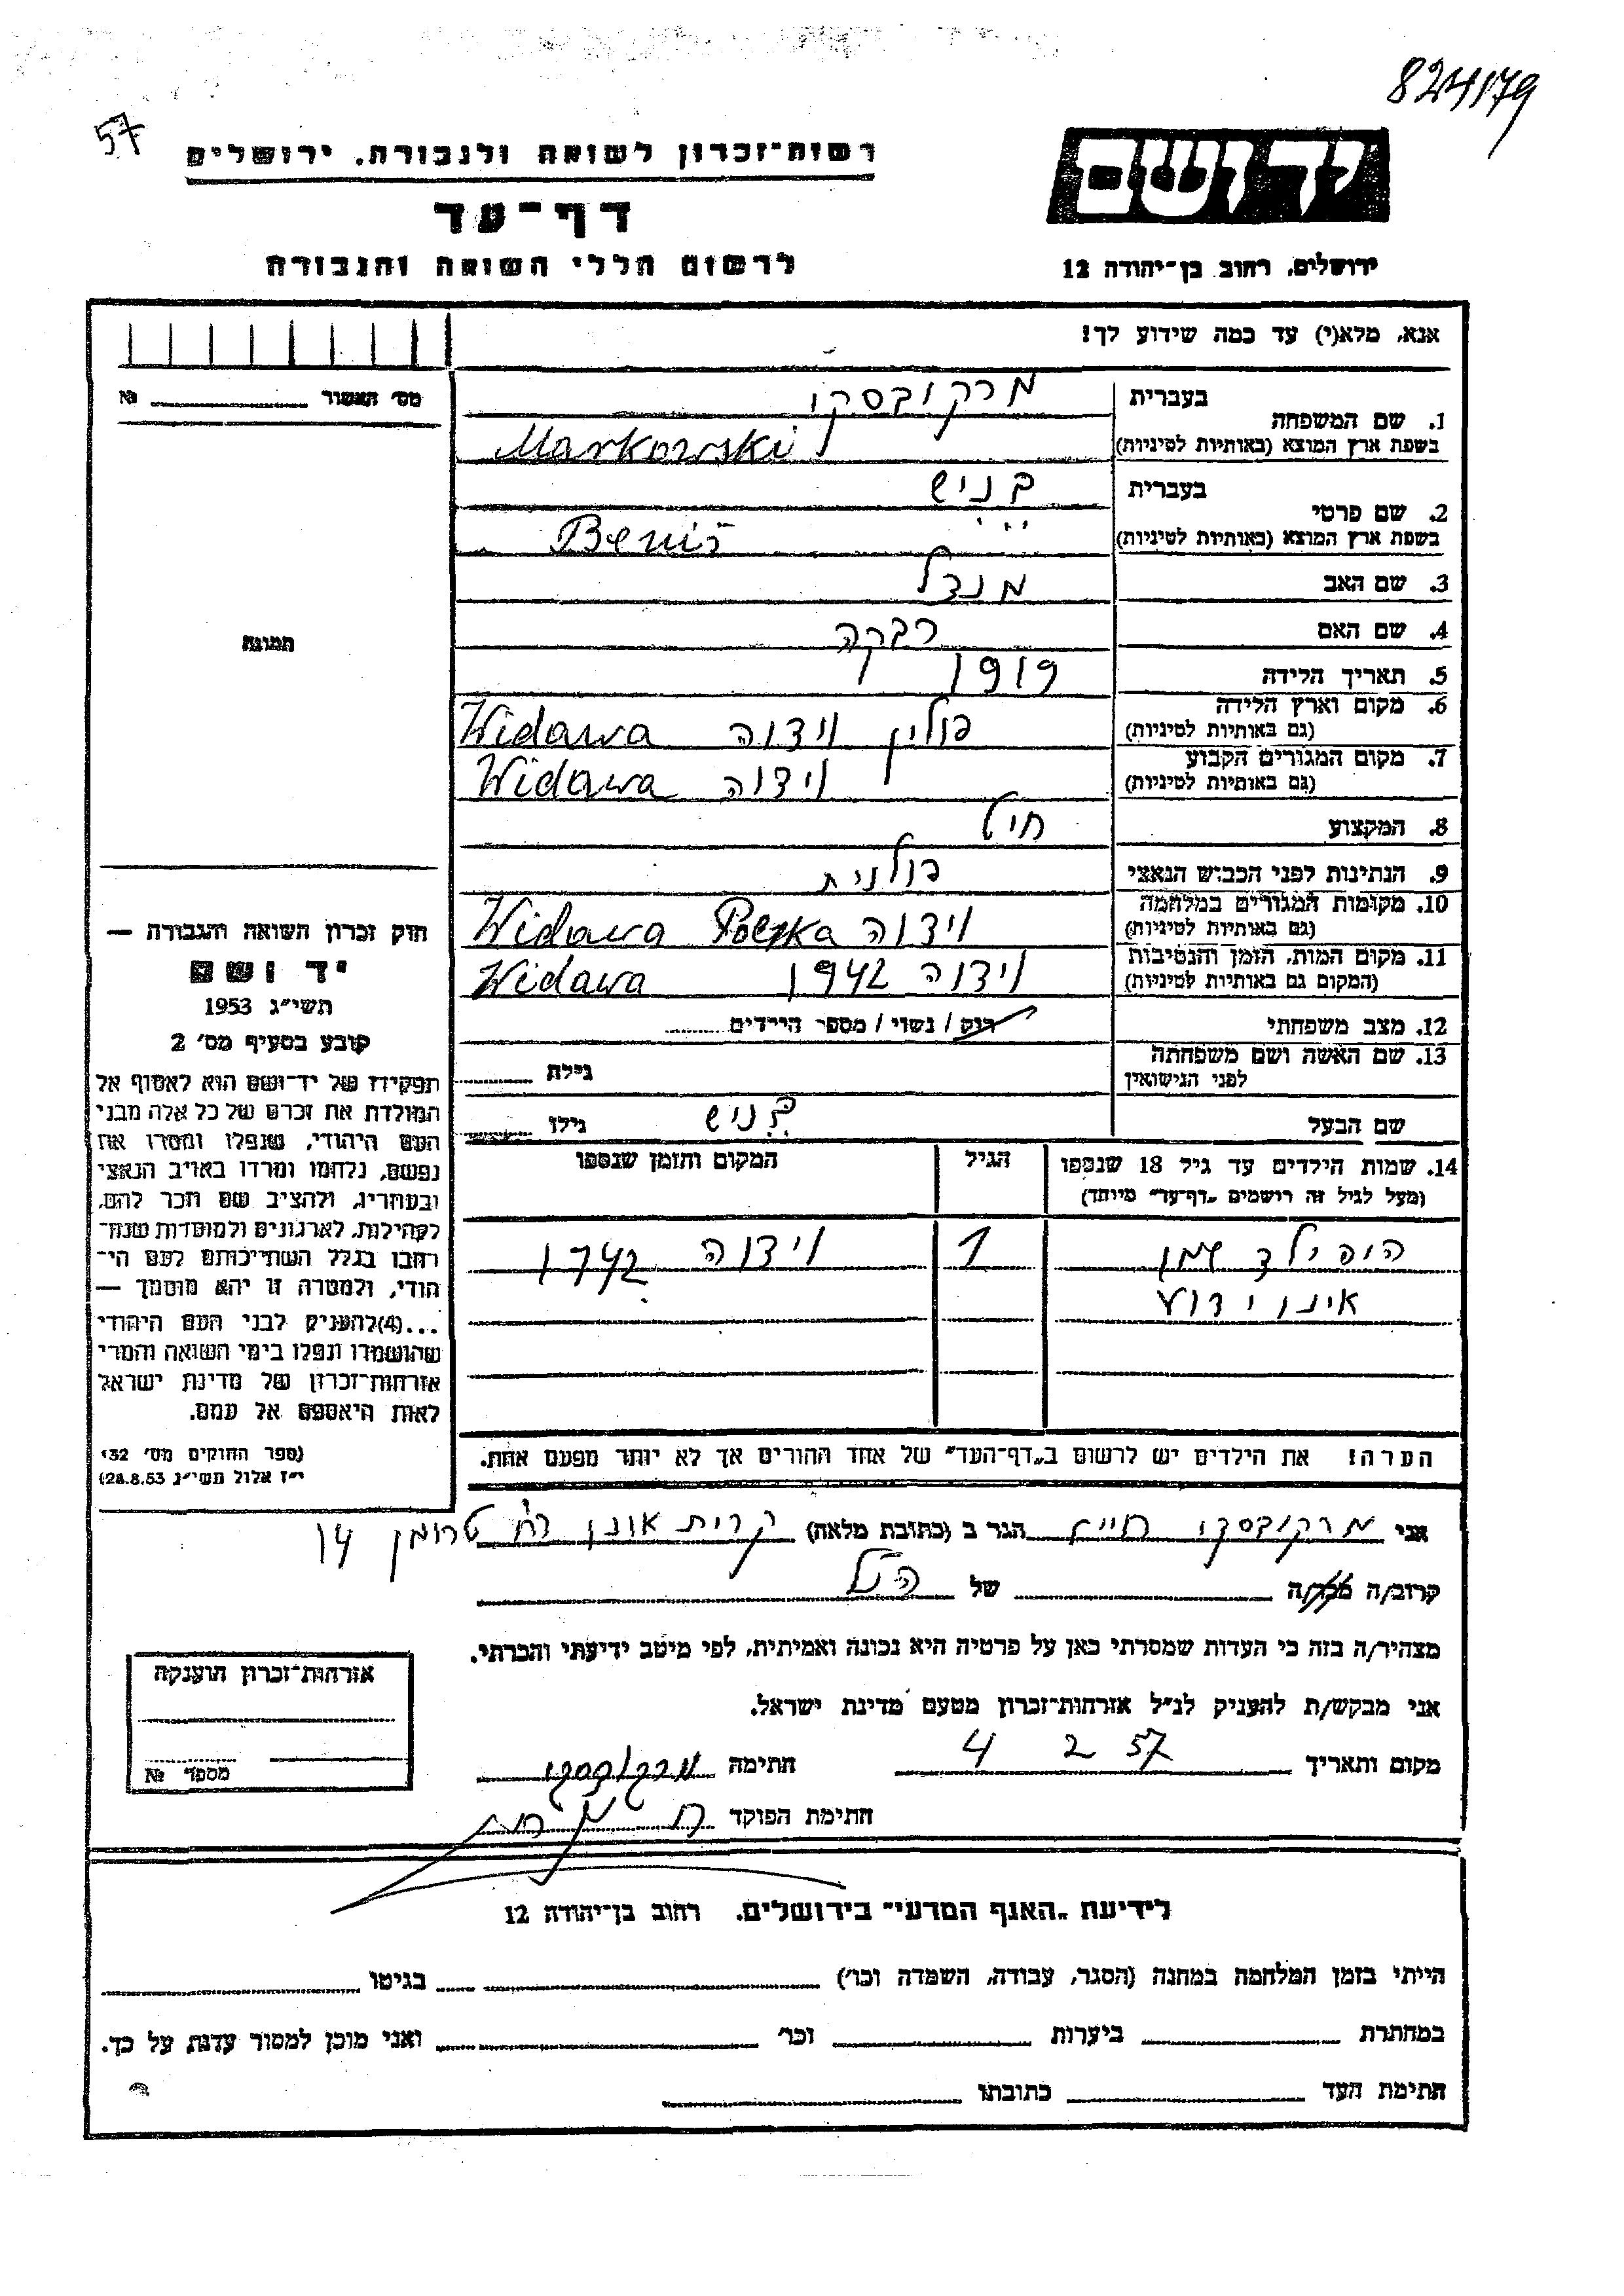 824179
57
יד ושם
רשות-זכרון לשואה ולגבורה, ירושלים
דף-עד
לרשום חללי השואה והגבורה
ירושלים, רחוב בן-יהודה 12
אנא, מלא(י) עד כמה שידוע לך!
מס' האשור № 
1. שם המשפחה בעברית מרקובסקי
בשפת ארץ המוצא (באותיות לטיניות) Markowski
2. שם פרטי בעברית בניש
בשפת ארץ המוצא (באותיות לטיניות) Beniś
3. שם האב מנדל
4. שם האם רבקה
5. תאריך הלידה 1919
6. מקום וארץ הלידה (גם באותיות לטיניות) פולין וידוה Widawa
7. מקום המגורים הקבוע (גם באותיות לטיניות) וידוה Widawa
8. המקצוע חיט
9. הנתינות לפני הכבוש הנאצי פולנית
10. מקומות המגורים במלחמה (גם באותיות לטיניות) וידוה Widawa Polska
11. מקום המות, הזמן והנסיבות (המקום גם באותיות לטיניות) וידוה 1942 Widawa
12. מצב משפחתי רוק / נשוי / מספר הילדים
13. שם האשה ושם משפחתה לפני הנישואין גילה
שם הבעל בניש גילו
14. שמות הילדים עד גיל 18 שנספו הגיל המקום והזמן שנספו
(מעל לגיל זה רושמים "דף-עד" מיוחד)
הופילד שמו 1 וידוה 1942
אינו ידוע
הערה! את הילדים יש לרשום ב"דף-העד" של אחד ההורים אך לא יותר מפעם אחת.
תמונה
חוק זכרון השואה והגבורה —
יד ושם
תשי"ג 1953
קובע בסעיף מס' 2
תפקידו של יד-ושם הוא לאסוף אל
המולדת את זכרם של כל אלה מבני
העם היהודי, שנפלו ומסרו את
נפשם, נלחמו ומרדו באויב הנאצי
ובעוזריו, ולהציב שם וזכר להם,
לקהילות, לארגונים ולמוסדות שנח-
רבו בגלל השתייכותם לעם הי-
הודי, ולמטרה זו יהא מוסמך —
...(4) להעניק לבני העם היהודי
שהושמדו ונפלו בימי השואה והמרי
אזרחות-זכרון של מדינת ישראל
לאות היאספם אל עמם.
(ספר החוקים מס' 132
י"ז אלול תשי"ג 28.8.53)
אני מרקובסקי חייל הגר ב (כתובת מלאה) קרית אונו רח' טרומן 14
קרוב/ה מכר/ה של הנ"ל
מצהיר/ה בזה כי העדות שמסרתי כאן על פרטיה היא נכונה ואמיתית, לפי מיטב ידיעתי והכרתי.
אני מבקש/ת להעניק לנ"ל אזרחות-זכרון מטעם מדינת ישראל.
מקום ותאריך 4 2 57 חתימה מרקובסקי
חתימת הפוקד
אזרחות-זכרון הוענקה
מספר №
לידיעת "האגף המדעי" בירושלים, רחוב בן-יהודה 12
הייתי בזמן המלחמה במחנה (הסגר, עבודה, השמדה וכו') בגיטו
במחתרת ביערות וכו' ואני מוכן למסור עדות על כך.
חתימת העד כתובתו